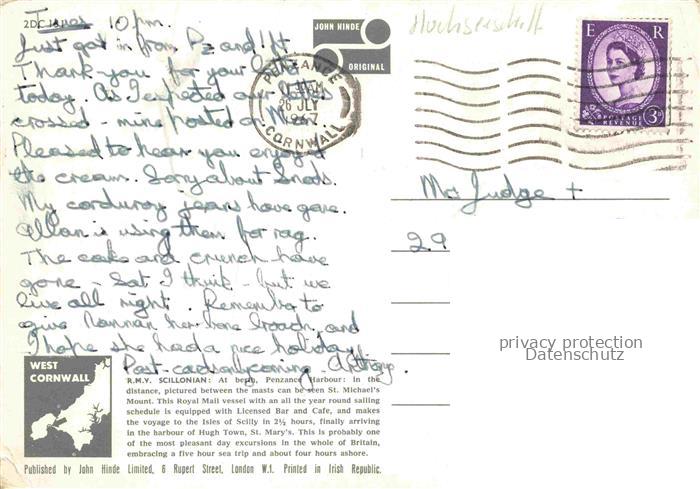 2DC
Tues 10 pm.
Just got in from Pz and
Thank you for your letter
today. As I expected our letters
crossed - mine posted on Mon.
Pleased to hear you enjoyed
the cream. Sorry about
My corduroy jeans have gone.
Allan is using them for rag.
The cake and crunch have
gone - Sat I think - but we
live all right. Remember to
give her bone brooch, and
I hope she had a nice holiday.
Post-cards only coming.
JOHN HINDE
ORIGINAL
PENZANCE
26 JLY
1967
CORNWALL
E R
POSTAGE
REVENUE
3D
Mr Judge +
29
privacy protection
Datenschutz
WEST
CORNWALL
R.M.V. SCILLONIAN: At berth, Penzance Harbour: in the
distance, pictured between the masts can be seen St. Michael's
Mount. This Royal Mail vessel with an all the year round sailing
schedule is equipped with Licensed Bar and Cafe, and makes
the voyage to the Isles of Scilly in 2½ hours, finally arriving
in the harbour of Hugh Town, St. Mary's. This is probably one
of the most pleasant day excursions in the whole of Britain,
embracing a five hour sea trip and about four hours ashore.
Published by John Hinde Limited, 6 Rupert Street, London W.1. Printed in Irish Republic.